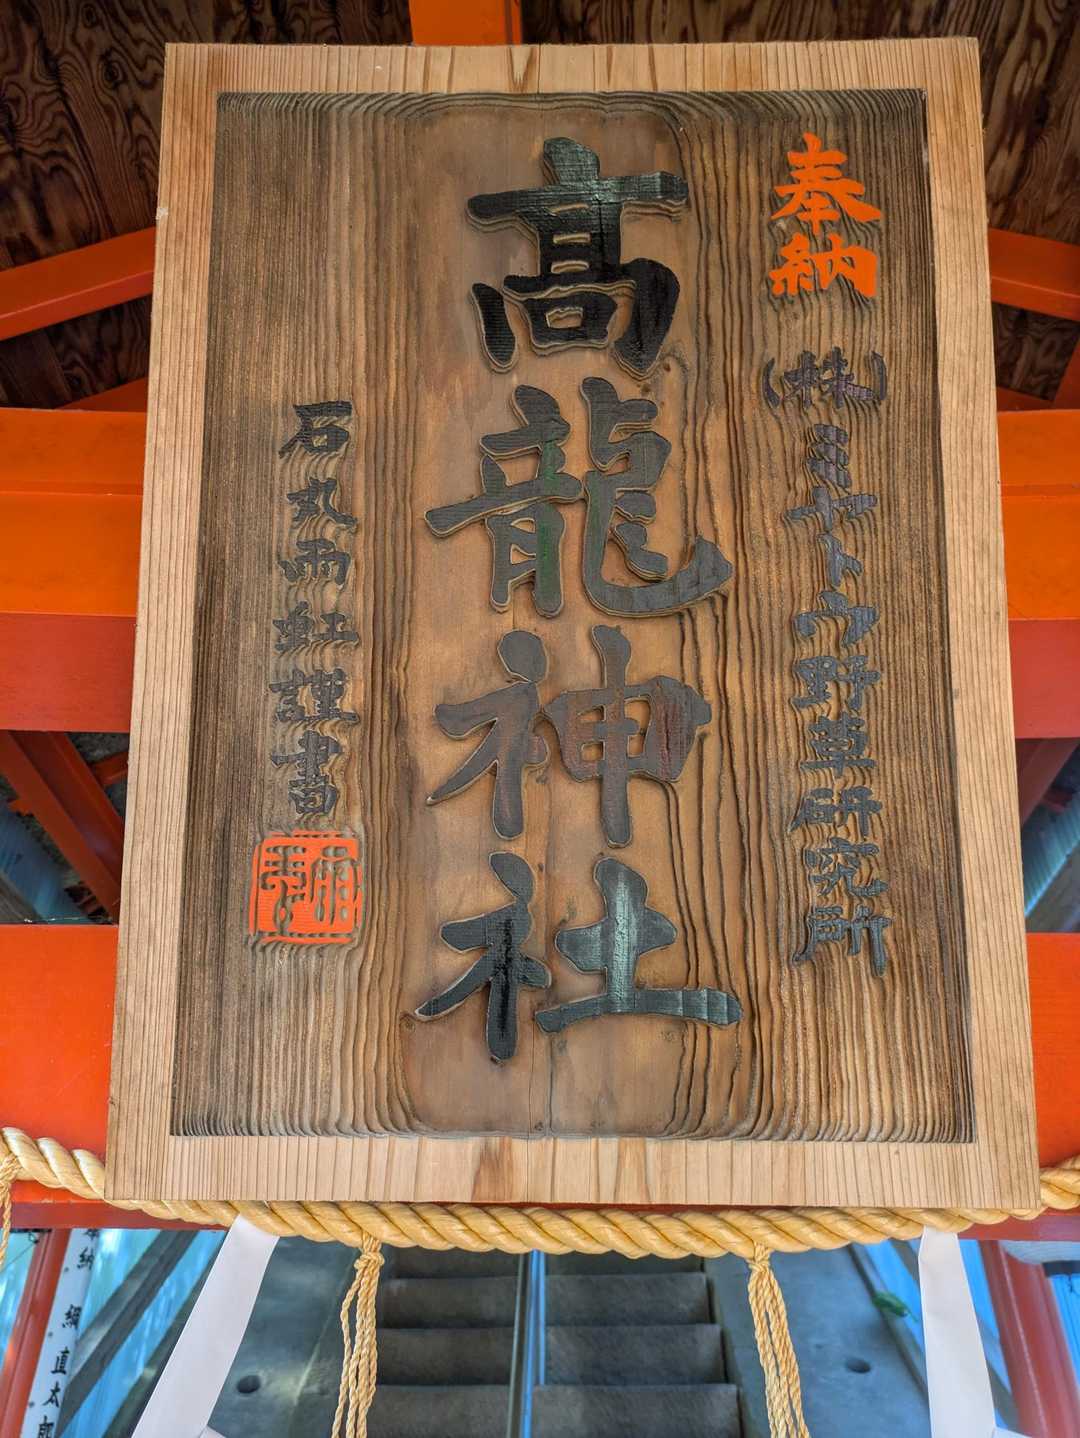 奉納
(株)ミヤトウ野草研究所
高龍神社
石丸雨虹謹書
奉納 綱直太郎